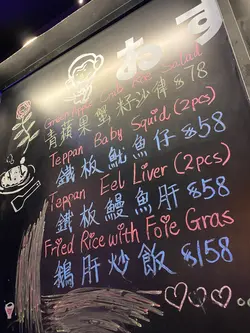 おす
Green Apple Crab Roe Salad
青蘋果蟹籽沙律 $78
Teppan Baby Squid (2pcs)
鐵板魷魚仔 $58
Teppan Eel Liver (2pcs)
鐵板鰻魚肝 $58
Fried Rice with Foie Gras
鵝肝炒飯 $158